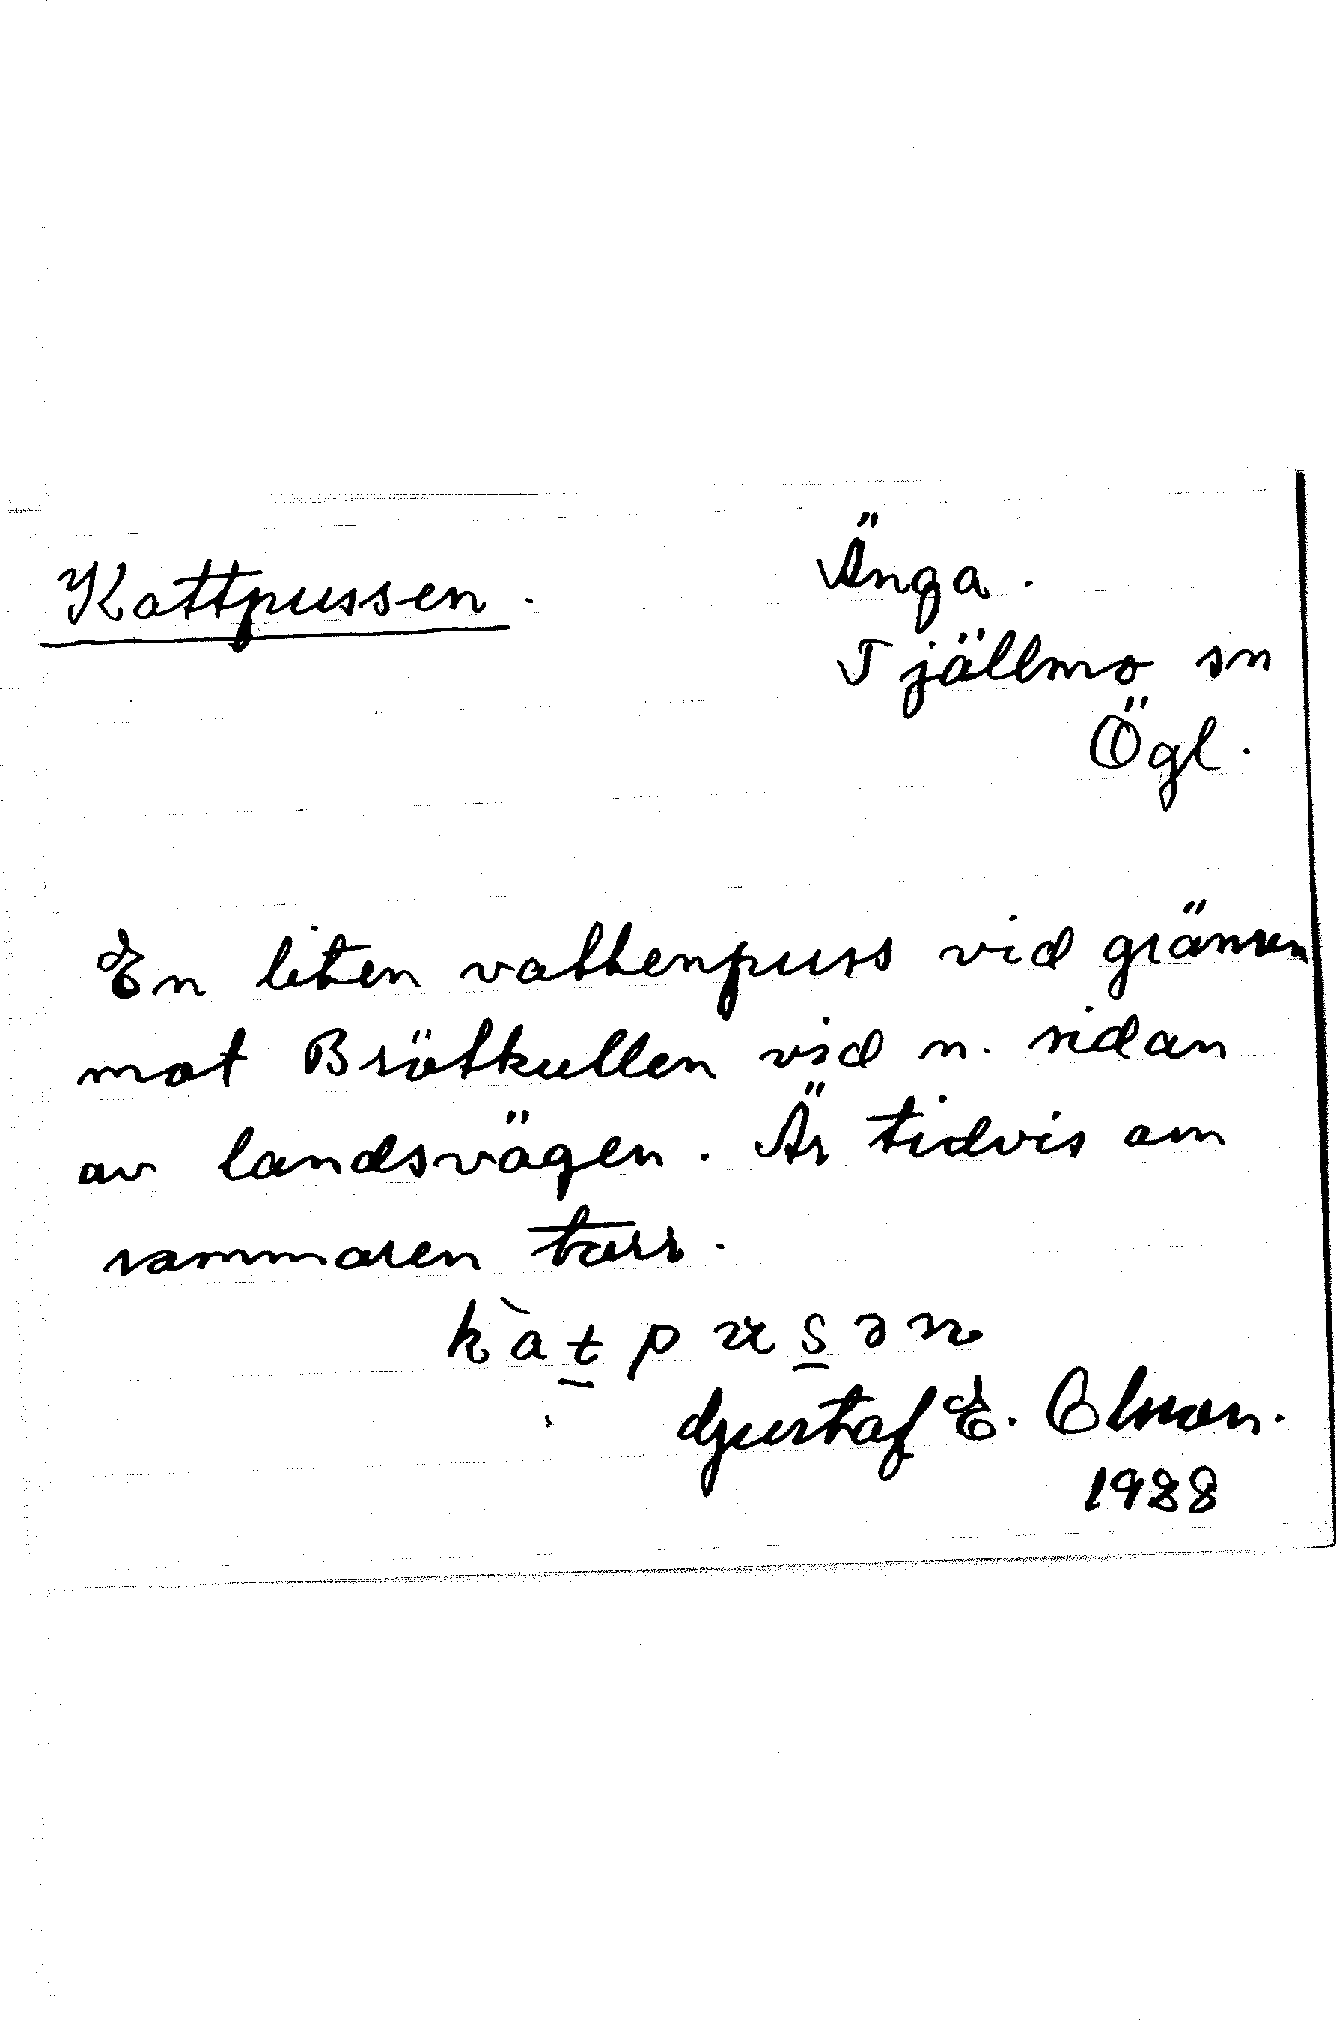 Kattpussen.
Änga.
Tjällmo sn
Ögl.
En liten vattenpuss vid gränsen
mot Brötkullen vid n. sidan
av landsvägen. Är tidvis om
sommaren torr.
kàt̲pus̲ən
Gustaf E. Olson.
1988